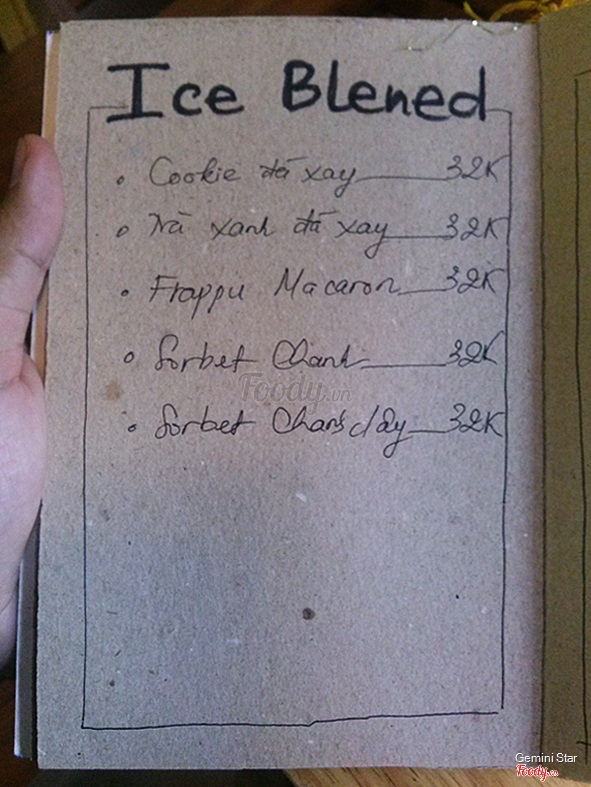 Ice Blened
• Cookie đá xay 32K
• Trà xanh đá xay 32K
• Frappu Macaron 32K
• Sorbet Chanh 32K
• Sorbet Chanh dây 32K
Foody.vn
Gemini Star
Foody.vn